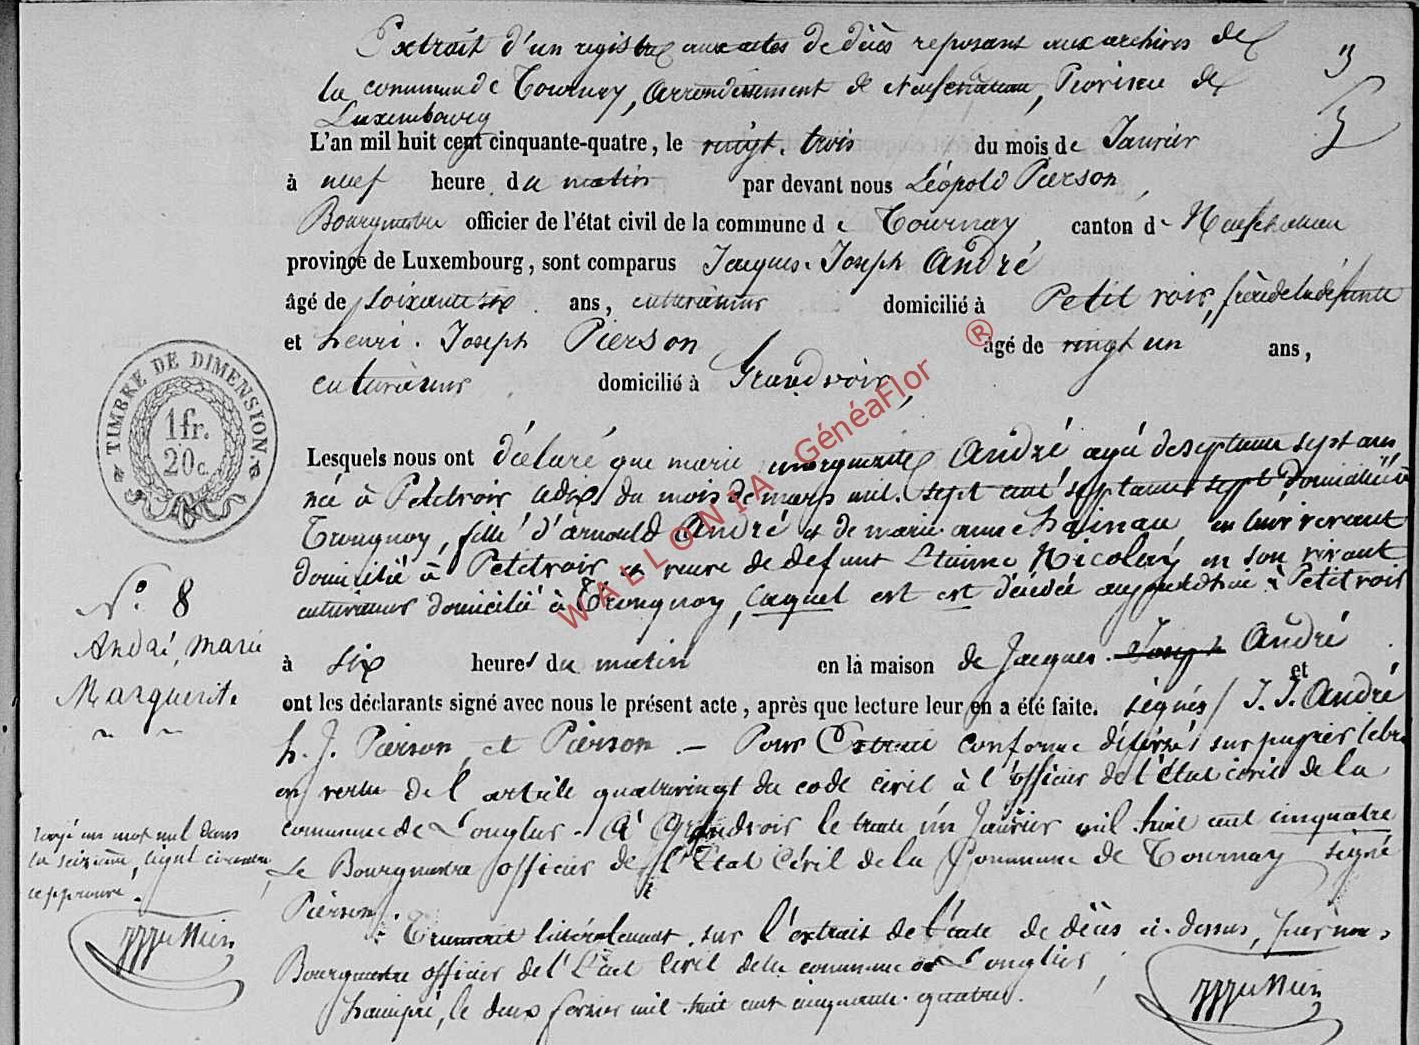 Extrait d'un registre aux actes de décès reposant aux archives de
la commune de Tournay, Arrondissement de Neufchateau, Province de
Luxembourg
L'an mil huit cent cinquante-quatre, le vingt-trois du mois de Janvier
à neuf heure du matin par devant nous Léopold Pierson,
Bourgmestre officier de l'état civil de la commune de Tournay canton de Neufchateau
province de Luxembourg, sont comparus Jacques-Joseph André
âgé de soixante six ans, cultivateur domicilié à Petit voir, frère de la défunte
et henri-Joseph Pierson âgé de vingt un ans,
cultivateur domicilié à Grandvoir,
Lesquels nous ont déclaré que marie marguerite André agée de septante sept ans
née à Petitvoir le dix du mois de mars mil sept cent septante sept domiciliée à
Tronquoy, fille d'arnould André et de marie-anne hainau, en leur vivant
domicilié à Petitvoir et veuve de défunt Etienne Nicolay en son vivant
cultivateur domicilié à Tronquoy, laquel est est décédée aujourd'hui à Petitvoir
à six heures du matin en la maison de Jacques-Joseph André et
ont les déclarants signé avec nous le présent acte, après que lecture leur en a été faite. signés / J. J. André
h. J. Pierson, et Pierson. — Pour Extrait conforme délivré sur papier libre
en vertu de l'article quatrevingt du code civil à l'officier de l'état civil de la
commune de Longlier. A Grandvoir le trente un Janvier mil huit cent cinquatre
Le Bourgmestre officier de l'Etat Civil de la Commune de Tournay signé
Pierson.
Transcrit littéralement sur l'extrait de l'acte de décès ci-dessus, par nous
Bourgmestre officier de l'Etat Civil de la commune de Longlier,
hamipré, le deux fevrier mil huit cent cinquante-quatre.
TIMBRE DE DIMENSION.
1 fr.
20 c.
N° 8
André, Marie
Marguerite
rayé un mot nul dans
la seizième ligne
approuvé.
WALLONIA GénéaFlor ®